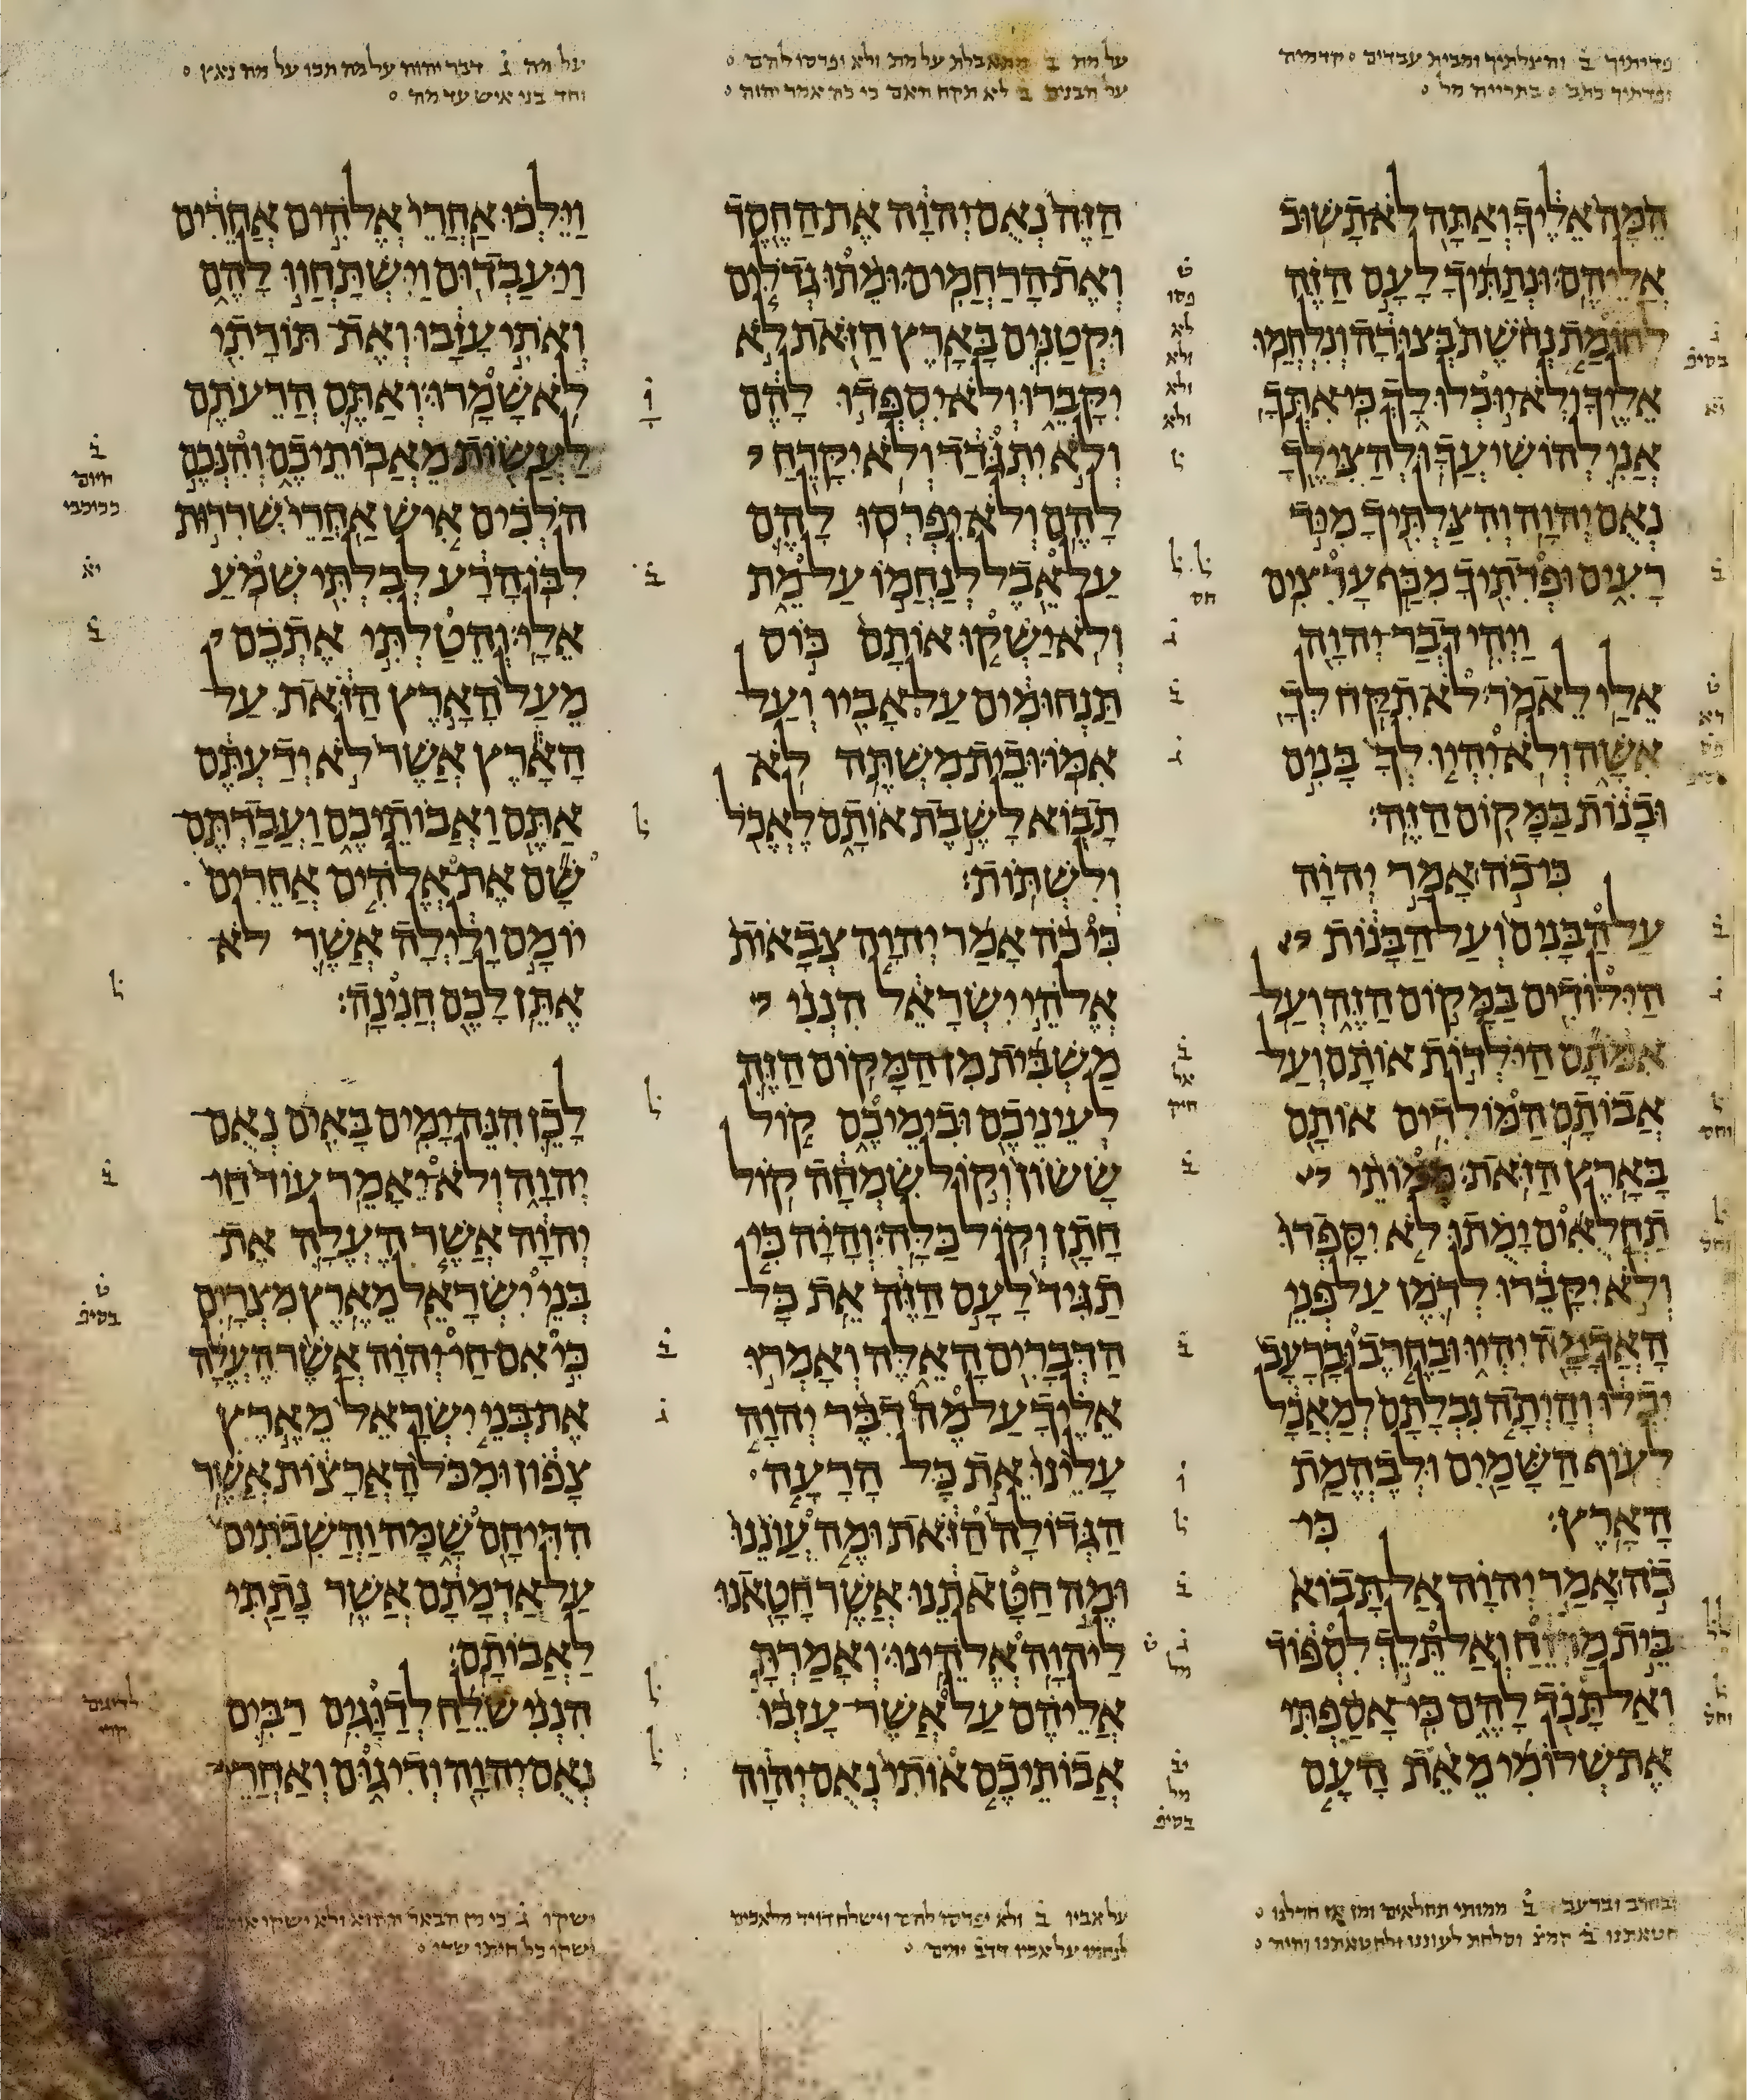 פדיתיך ב והצלתיך ומבית עבדים קדמיה
ופדתיך כתב בתרייה מל
על מת ב מתאבלת על מת ולא ופרסו להם
על הבנים ב לא תקח האם כי כה אמר יהוה
על מה ג דבר יהוה על מה תכו על מה נאץ
וחד בני איש עד מה
הֵמָּה אֵלֶיךָ וְאַתָּה לֹא תָשׁוּב
אֲלֵיהֶם׃ וּנְתַתִּיךָ לָעָם הַזֶּה
לְחוֹמַת נְחֹשֶׁת בְּצוּרָה וְנִלְחֲמוּ
אֵלֶיךָ וְלֹא יוּכְלוּ לָךְ כִּי אִתְּךָ
אֲנִי לְהוֹשִׁיעֲךָ וּלְהַצִּילֶךָ
נְאֻם יְהוָה׃ וְהִצַּלְתִּיךָ מִיַּד
רָעִים וּפְדִתִיךָ מִכַּף עָרִצִים׃
וַיְהִי דְבַר יְהוָה
אֵלַי לֵאמֹר׃ לֹא תִקַּח לְךָ
אִשָּׁה וְלֹא יִהְיוּ לְךָ בָּנִים
וּבָנוֹת בַּמָּקוֹם הַזֶּה׃
כִּי כֹה אָמַר יְהוָה
עַל הַבָּנִים וְעַל הַבָּנוֹת
הַיִּלּוֹדִים בַּמָּקוֹם הַזֶּה וְעַל
אִמֹּתָם הַיֹּלְדוֹת אוֹתָם וְעַל
אֲבוֹתָם הַמּוֹלִדִים אוֹתָם
בָּאָרֶץ הַזֹּאת׃ מְמוֹתֵי
תַחֲלֻאִים יָמֻתוּ לֹא יִסָּפְדוּ
וְלֹא יִקָּבֵרוּ לְדֹמֶן עַל פְּנֵי
הָאֲדָמָה יִהְיוּ וּבַחֶרֶב וּבָרָעָב
יִכְלוּ וְהָיְתָה נִבְלָתָם לְמַאֲכָל
לְעוֹף הַשָּׁמַיִם וּלְבֶהֱמַת
הָאָרֶץ׃ כִּי
כֹה אָמַר יְהוָה אַל תָּבוֹא
בֵּית מַרְזֵחַ וְאַל תֵּלֵךְ לִסְפּוֹד
וְאַל תָּנֹד לָהֶם כִּי אָסַפְתִּי
אֶת שְׁלוֹמִי מֵאֵת הָעָם
הַזֶּה נְאֻם יְהוָה אֶת הַחֶסֶד
וְאֶת הָרַחֲמִים׃ וּמֵתוּ גְדֹלִים
וּקְטַנִּים בָּאָרֶץ הַזֹּאת לֹא
יִקָּבֵרוּ וְלֹא יִסְפְּדוּ לָהֶם
וְלֹא יִתְגֹּדַד וְלֹא יִקָּרֵחַ
לָהֶם׃ וְלֹא יִפְרְסוּ לָהֶם
עַל אֵבֶל לְנַחֲמוֹ עַל מֵת
וְלֹא יַשְׁקוּ אוֹתָם כּוֹס
תַּנְחוּמִים עַל אָבִיו וְעַל
אִמּוֹ׃ וּבֵית מִשְׁתֶּה לֹא
תָבוֹא לָשֶׁבֶת אוֹתָם לֶאֱכֹל
וְלִשְׁתּוֹת׃
כִּי כֹה אָמַר יְהוָה צְבָאוֹת
אֱלֹהֵי יִשְׂרָאֵל הִנְנִי
מַשְׁבִּית מִן הַמָּקוֹם הַזֶּה
לְעֵינֵיכֶם וּבִימֵיכֶם קוֹל
שָׂשׂוֹן וְקוֹל שִׂמְחָה קוֹל
חָתָן וְקוֹל כַּלָּה׃ וְהָיָה כִּי
תַגִּיד לָעָם הַזֶּה אֵת כָּל
הַדְּבָרִים הָאֵלֶּה וְאָמְרוּ
אֵלֶיךָ עַל מֶה דִבֶּר יְהוָה
עָלֵינוּ אֵת כָּל הָרָעָה
הַגְּדוֹלָה הַזֹּאת וּמֶה עֲוֹנֵנוּ
וּמֶה חַטָּאתֵנוּ אֲשֶׁר חָטָאנוּ
לַיהוָה אֱלֹהֵינוּ׃ וְאָמַרְתָּ
אֲלֵיהֶם עַל אֲשֶׁר עָזְבוּ
אֲבוֹתֵיכֶם אוֹתִי נְאֻם יְהוָה
וַיֵּלְכוּ אַחֲרֵי אֱלֹהִים אֲחֵרִים
וַיַּעַבְדוּם וַיִּשְׁתַּחֲווּ לָהֶם
וְאֹתִי עָזָבוּ וְאֶת תּוֹרָתִי
לֹא שָׁמָרוּ׃ וְאַתֶּם הֲרֵעֹתֶם
לַעֲשׂוֹת מֵאֲבוֹתֵיכֶם וְהִנְּכֶם
הֹלְכִים אִישׁ אַחֲרֵי שְׁרִרוּת
לִבּוֹ הָרָע לְבִלְתִּי שְׁמֹעַ
אֵלָי׃ וְהֵטַלְתִּי אֶתְכֶם
מֵעַל הָאָרֶץ הַזֹּאת עַל
הָאָרֶץ אֲשֶׁר לֹא יְדַעְתֶּם
אַתֶּם וַאֲבוֹתֵיכֶם וַעֲבַדְתֶּם
שָׁם אֶת אֱלֹהִים אֲחֵרִים
יוֹמָם וָלַיְלָה אֲשֶׁר לֹא
אֶתֵּן לָכֶם חֲנִינָה׃
לָכֵן הִנֵּה יָמִים בָּאִים נְאֻם
יְהוָה וְלֹא יֵאָמֵר עוֹד חַי
יְהוָה אֲשֶׁר הֶעֱלָה אֶת
בְּנֵי יִשְׂרָאֵל מֵאֶרֶץ מִצְרָיִם׃
כִּי אִם חַי יְהוָה אֲשֶׁר הֶעֱלָה
אֶת בְּנֵי יִשְׂרָאֵל מֵאֶרֶץ
צָפוֹן וּמִכֹּל הָאֲרָצוֹת אֲשֶׁר
הִדִּיחָם שָׁמָּה וַהֲשִׁבֹתִים
עַל אַדְמָתָם אֲשֶׁר נָתַתִּי
לַאֲבוֹתָם׃
הִנְנִי שֹׁלֵחַ לְדַוָּגִים רַבִּים
נְאֻם יְהוָה וְדִיגוּם וְאַחֲרֵי
ובחרב וברעב ב ממותי תחלאים ומן אז חדלנו
חטאתנו ב קמצ וסלחת לעוננו ולחטאתנו
על אביו ב ולא יפרסו להם וישלח דויד מלאכים
לנחמו על אביו דדב ימים
ישקו ג כי מן הבאר ההוא ולא ישקו
ישקו כל חיתו שדי